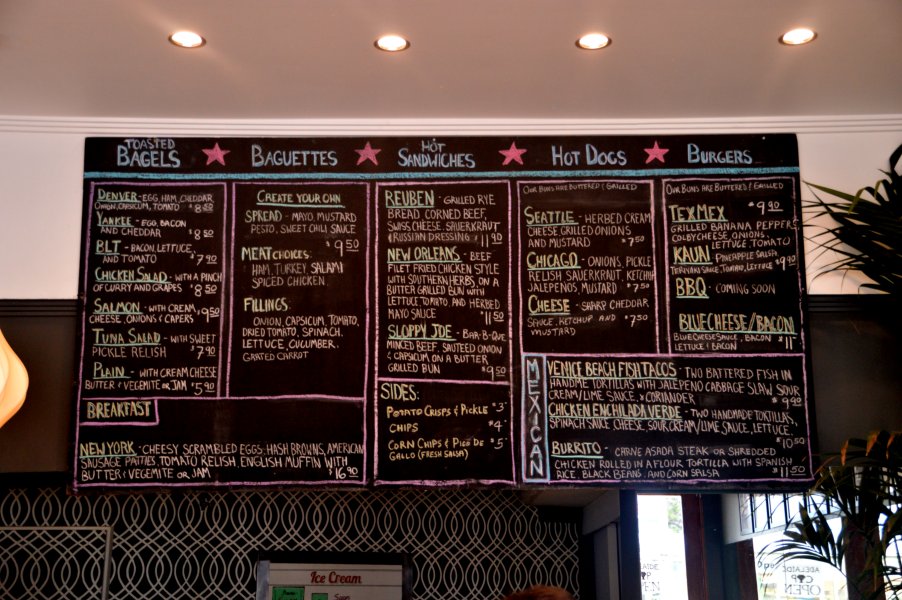 TOASTED
BAGELS
BAGUETTES
HOT
SANDWICHES
HOT DOGS
BURGERS
DENVER - EGG, HAM, CHEDDAR,
ONION, CAPSICUM, TOMATO $8.50
YANKEE - EGG, BACON
AND CHEDDAR $8.50
BLT - BACON, LETTUCE
AND TOMATO $7.90
CHICKEN SALAD - WITH A PINCH
OF CURRY AND GRAPES $8.50
SALMON - WITH CREAM
CHEESE, ONIONS & CAPERS $9.50
TUNA SALAD - WITH SWEET
PICKLE RELISH $7.90
PLAIN - WITH CREAM CHEESE
BUTTER & VEGEMITE OR JAM $5.90
BREAKFAST
NEW YORK - CHEESY SCRAMBLED EGGS, HASH BROWNS, AMERICAN
SAUSAGE PATTIES, TOMATO RELISH, ENGLISH MUFFIN WITH
BUTTER & VEGEMITE OR JAM $16.90
CREATE YOUR OWN
SPREAD - MAYO, MUSTARD
PESTO, SWEET CHILI SAUCE
$9.50
MEAT CHOICES:
HAM, TURKEY, SALAMI
SPICED CHICKEN.
FILLINGS:
ONION, CAPSICUM, TOMATO,
DRIED TOMATO, SPINACH,
LETTUCE, CUCUMBER,
GRATED CARROT
REUBEN - GRILLED RYE
BREAD, CORNED BEEF,
SWISS CHEESE, SAUERKRAUT
& RUSSIAN DRESSING $11.90
NEW ORLEANS - BEEF
FILET FRIED CHICKEN STYLE
WITH SOUTHERN HERBS, ON A
BUTTER GRILLED BUN WITH
LETTUCE TOMATO, AND HERBED
MAYO SAUCE $11.50
SLOPPY JOE - BAR-B-QUE
MINCED BEEF, SAUTEED ONION
& CAPSICUM ON A BUTTER
GRILLED BUN $9.50
SIDES:
POTATO CRISPS & PICKLE $3
CHIPS $4
CORN CHIPS & PICO DE $5
GALLO (FRESH SALSA)
OUR BUNS ARE BUTTERED & GRILLED
SEATTLE - HERBED CREAM
CHEESE, GRILLED ONIONS
AND MUSTARD $7.50
CHICAGO - ONIONS, PICKLE
RELISH, SAUERKRAUT, KETCHUP
JALEPENOS, MUSTARD $7.50
CHEESE - SHARP CHEDDAR
SAUCE, KETCHUP AND $7.50
MUSTARD
OUR BUNS ARE BUTTERED & GRILLED
$9.90
TEXMEX
GRILLED BANANA PEPPER
COLBY CHEESE, ONIONS,
LETTUCE, TOMATO
KAUAI - PINEAPPLE SALSA
TERIYAKI SAUCE, TOMATO, LETTUCE $9.90
BBQ - COMING SOON
BLUE CHEESE/BACON
BLUE CHEESE SAUCE, BACON
LETTUCE & BACON $11
MEXICAN
VENICE BEACH FISH TACOS - TWO BATTERED FISH IN
HANDME TORTILLAS WITH JALEPENO CABBAGE SLAW SOUR
CREAM/LIME SAUCE, & CORIANDER $9.90
CHICKEN ENCHILADA VERDE - TWO HANDMADE TORTILLAS,
SPINACH SAUCE CHEESE, SOUR CREAM/LIME SAUCE, LETTUCE,
$10.50
BURRITO - CARNE ASADA STEAK OR SHREDDED
CHICKEN ROLLED IN A FLOUR TORTILLA WITH SPANISH
RICE, BLACK BEANS, AND CORN SALSA $11.50
Ice Cream
ADELAIDE
CUP
OPEN